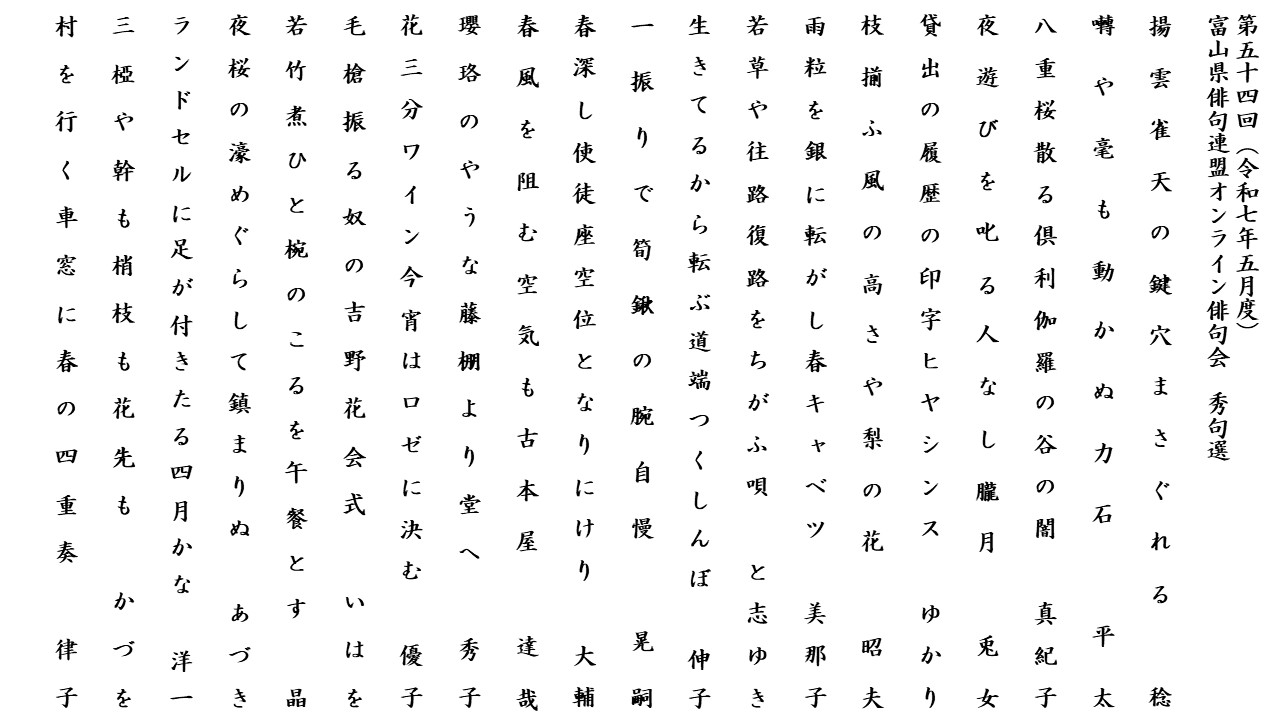 第五十四回(令和七年五月度)
富山県俳句連盟オンライン俳句会　秀句選
揚雲雀天の鍵穴まさぐれる　稔
囀や毫も動かぬ力石　平太
八重桜散る倶利伽羅の谷の闇　真紀子
夜遊びを叱る人なし朧月　兎女
貸出の履歴の印字ヒヤシンス　ゆかり
枝揃ふ風の高さや梨の花　昭夫
雨粒を銀に転がし春キャベツ　美那子
若草や往路復路をちがふ唄　と志ゆき
生きてるから転ぶ道端つくしんぼ　伸子
一振りで筍鍬の腕自慢　晃嗣
春深し使徒座空位となりにけり　大輔
春風を阻む空気も古本屋　達哉
瓔珞のやうな藤棚より堂へ　秀子
花三分ワイン今宵はロゼに決む　優子
毛槍振る奴の吉野花会式　いはを
若竹煮ひと椀のこるを午餐とす　晶
夜桜の濠めぐらして鎮まりぬ　あづき
ランドセルに足が付きたる四月かな　洋一
三椏や幹も梢枝も花先も　かづを
村を行く車窓に春の四重奏　律子